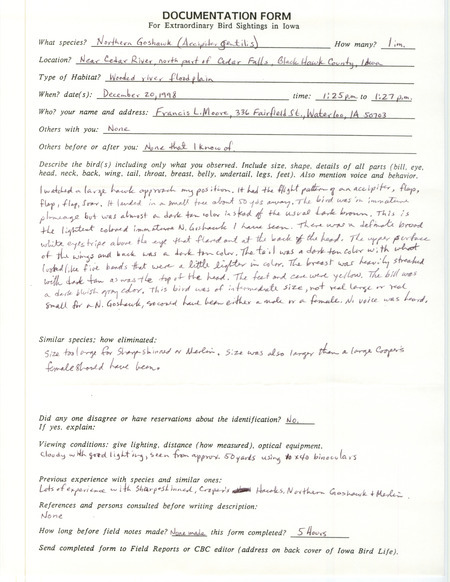 DOCUMENTATION FORM
For Extraordinary Bird Sightings in Iowa
What species? Northern Goshawk (Accipiter gentilis) How many? 1 im.
Location? Near Cedar River, north part of Cedar Falls, Black Hawk County, Iowa
Type of Habitat? Wooded river floodplain
When? date(s): December 20, 1998 time: 1:25 pm to 1:27 p.m.
Who? your name and address: Francis L. Moore, 336 Fairfield St., Waterloo, IA 50703
Others with you: None
Others before or after you: None that I know of
Describe the bird(s) including only what you observed. Include size, shape, details of all parts (bill, eye,
head, neck, back, wing, tail, throat, breast, belly, undertail, legs, feet). Also mention voice and behavior.
I watched a large hawk approach my position. It had the flight pattern of an accipiter, flap,
flap, flap, soar. It landed in a small tree about 50 yds away. The bird was in immature
plumage but was almost a dark tan color instead of the usual dark brown. This is
the lightest colored immature N. Goshawk I have seen. There was a definate broad
white eyestripe above the eye that flared out at the back of the head. The upper surface
of the wings and back was a dark tan color. The tail was a dark tan color with what
looked like five bands that were a little lighter in color. The breast was heavily streaked
with dark tan as was the top of the head. The feet and cere were yellow. The bill was
a dark bluish gray color. This bird was of intermediate size, not real large or real
small for a N. Goshawk, so could have been either a male or a female. No voice was heard.
Similar species; how eliminated:
Size too large for Sharp-shinned or Merlin. Size was also larger than a large Cooper's
female should have been.
Did any one disagree or have reservations about the identification? No.
If yes, explain:
Viewing conditions: give lighting, distance (how measured), optical equipment,
Cloudy with good lighting, seen from approx. 50 yards using x40 binoculars
Previous experience with species and similar ones:
Lots of experience with Sharp-shinned, Cooper's Hawks, Northern Goshawk & Merlin.
References and persons consulted before writing description:
None
How long before field notes made? None made this form completed? 5 Hours
Send completed form to Field Reports or CBC editor (address on back cover of Iowa Bird Life).